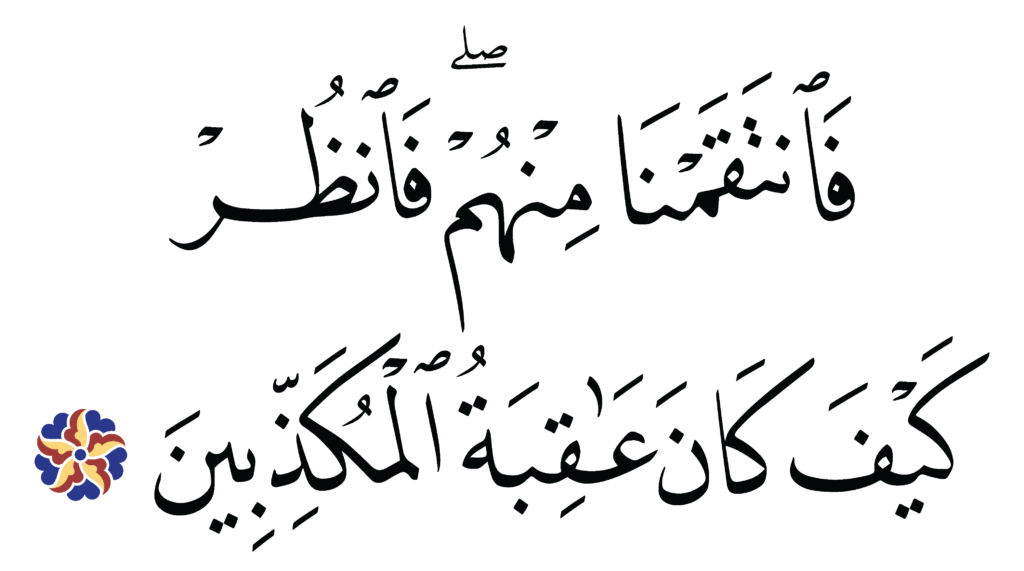 فَٱنتَقَمْنَا مِنْهُمْ ۖ فَٱنظُرْ
كَيْفَ كَانَ عَـٰقِبَةُ ٱلْمُكَذِّبِينَ